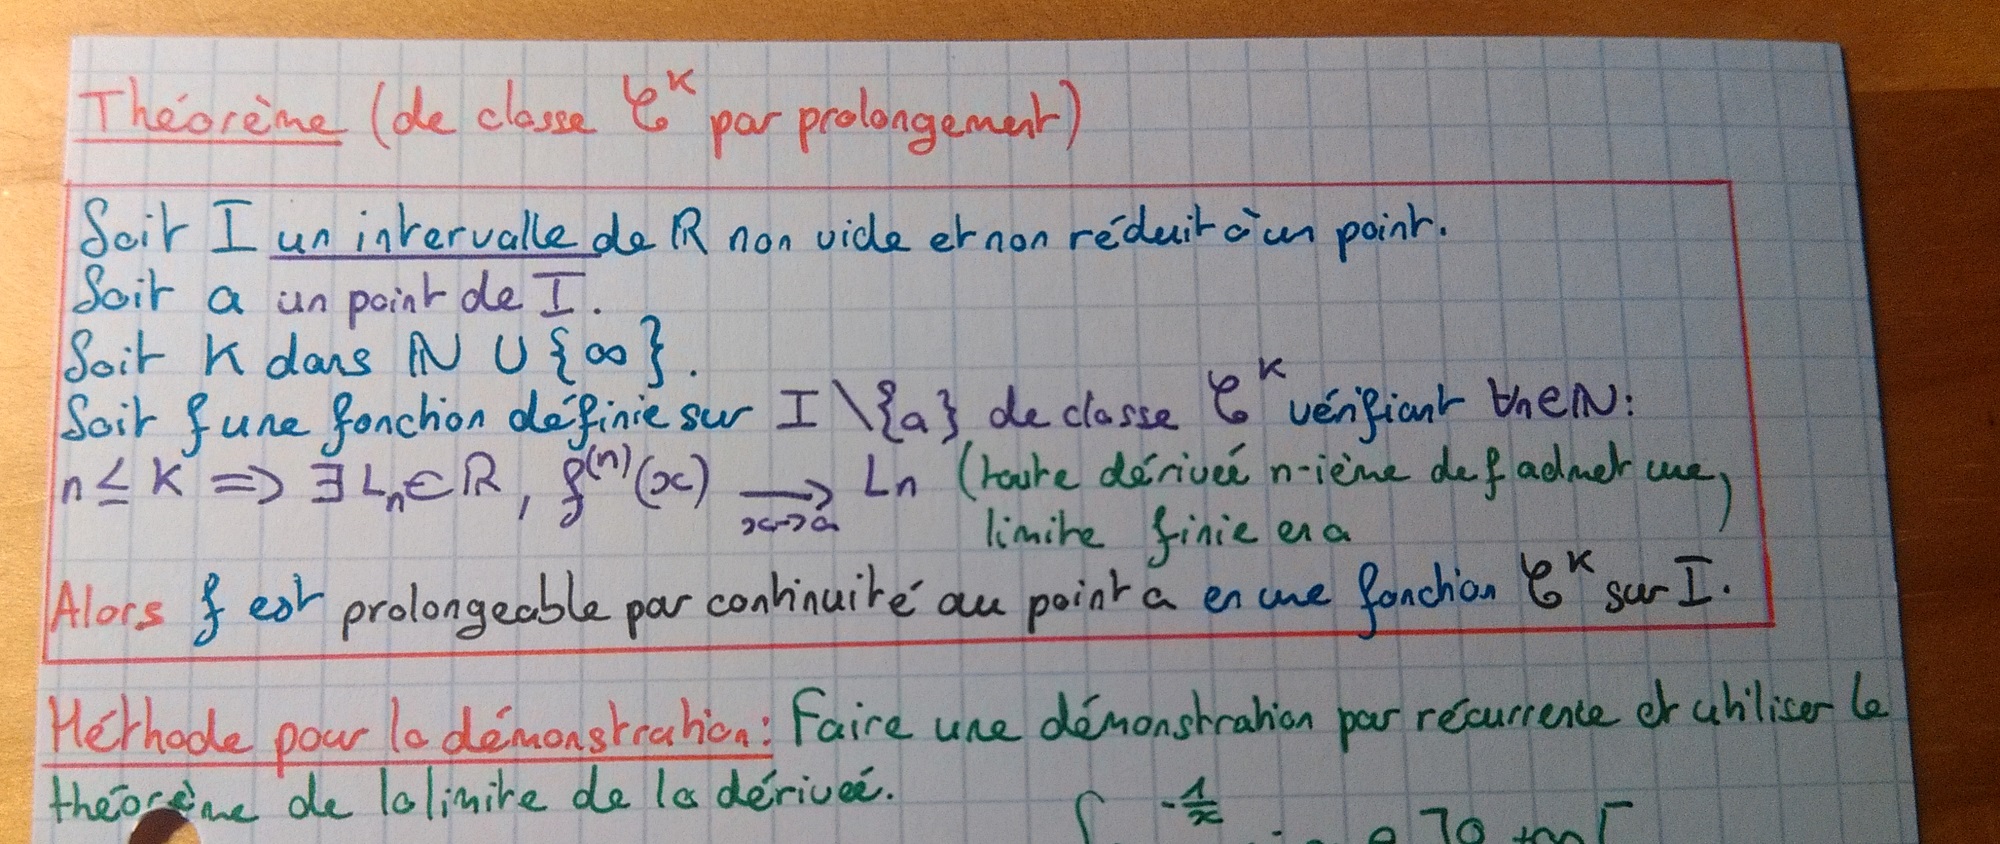 Théorème (de classe 𝒞^K par prolongement)
Soit I un intervalle de ℝ non vide et non réduit à un point.
Soit a un point de I.
Soit K dans ℕ ∪ {∞}.
Soit f une fonction définie sur I \ {a} de classe 𝒞^K vérifiant ∀n∈ℕ:
n ≤ K => ∃ L_n ∈ ℝ, f^(n)(x) ⟶ Ln (toute dérivée n-ième de f admet une
x->a limite finie en a)
Alors f est prolongeable par continuité au point a en une fonction 𝒞^K sur I.
Méthode pour la démonstration: Faire une démonstration par récurrence et utiliser le
théorème de la limite de la dérivée.
-1/x